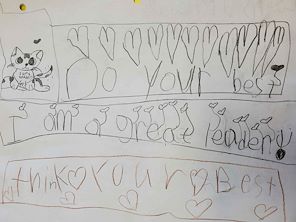 Do your best
I am a great leader!
think Your Best